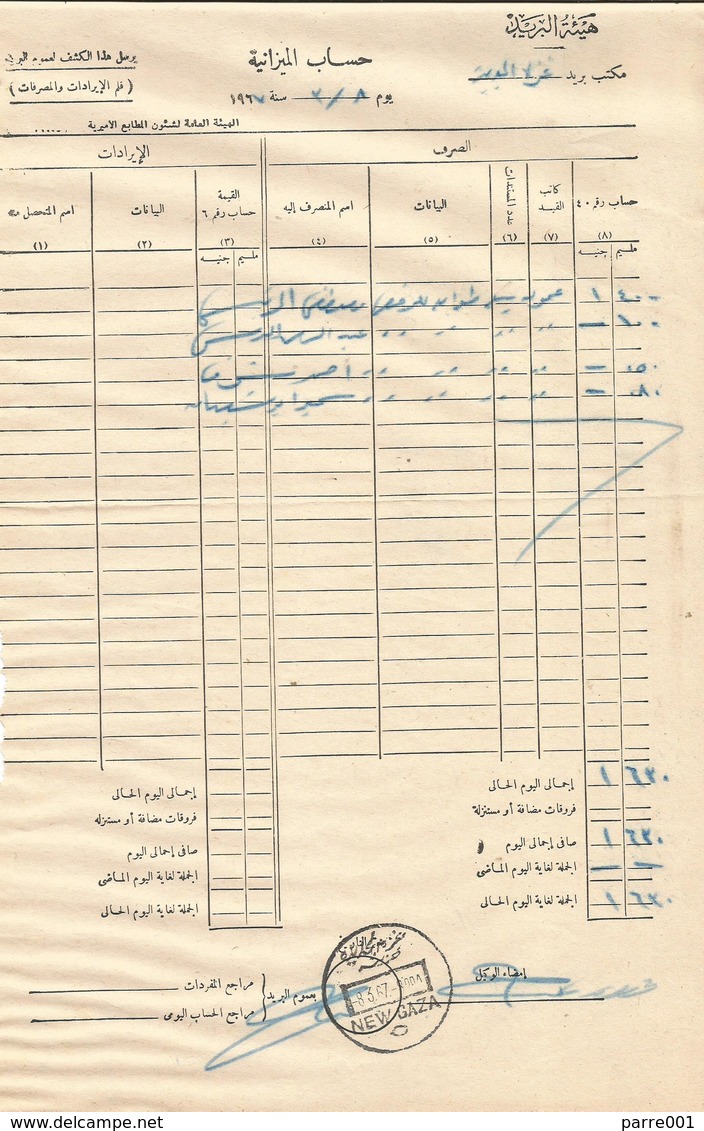 هيئة البريد
مكتب بريد غزة الجديدة
حساب الميزانية
يوم ٨/٣ سنة ١٩٦٧
يرسل هذا الكشف لعموم البريد
( قلم الإيرادات والمصرفات )
الهيئة العامة لشئون المطابع الاميرية
الصرف
الإيرادات
حساب رقم ٤٠
كاتب القيد
عدد المستندات
البيانات
اسم المنصرف إليه
القيمة حساب رقم ٦
البيانات
اسم المتحصل منه
(٨) (٧) (٦) (٥) (٤) (٣) (٢) (١)
مليم جنيه
مليم جنيه
٤٠٠ ١ عمولة بيع طوابع للمرخص مصطفى
١٠٠ — " " " " "
٠٥٠ — " " " " " احمد
٠٨٠ — " " " " "
إجمالى اليوم الحالى ٦٣٠ ١
فروقات مضافة أو مستنزلة
صافى إجمالى اليوم ٦٣٠ ١
الجملة لغاية اليوم الماضى — —
الجملة لغاية اليوم الحالى ٦٣٠ ١
إجمالى اليوم الحالى
فروقات مضافة أو مستنزله
صافى إجمالى اليوم
الجملة لغاية اليوم الماضى
الجملة لغاية اليوم الحالى
إمضاء الوكيل
بعموم البريد
مراجع المفردات
مراجع الحساب اليومى
8.3.67
NEW GAZA
parre001